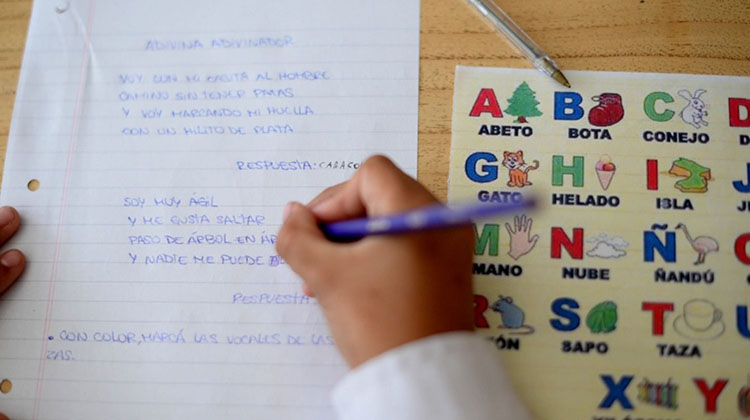 ADIVINA ADIVINADOR
VOY CON MI CASITA AL HOMBRO
CAMINO SIN TENER PATAS
Y VOY MARCANDO MI HUELLA
CON UN HILITO DE PLATA
RESPUESTA: CARACO
SOY MUY ÁGIL
Y ME GUSTA SALTAR
PASO DE ÁRBOL EN ÁR
Y NADIE ME PUEDE
RESPUESTA
• CON COLOR, MARCÁ LAS VOCALES DE LAS
TAS.
A B C D
ABETO BOTA CONEJO D
G H I J
GATO HELADO ISLA
M N Ñ
MANO NUBE ÑANDÚ
R S T U
TÓN SAPO TAZA
X Y